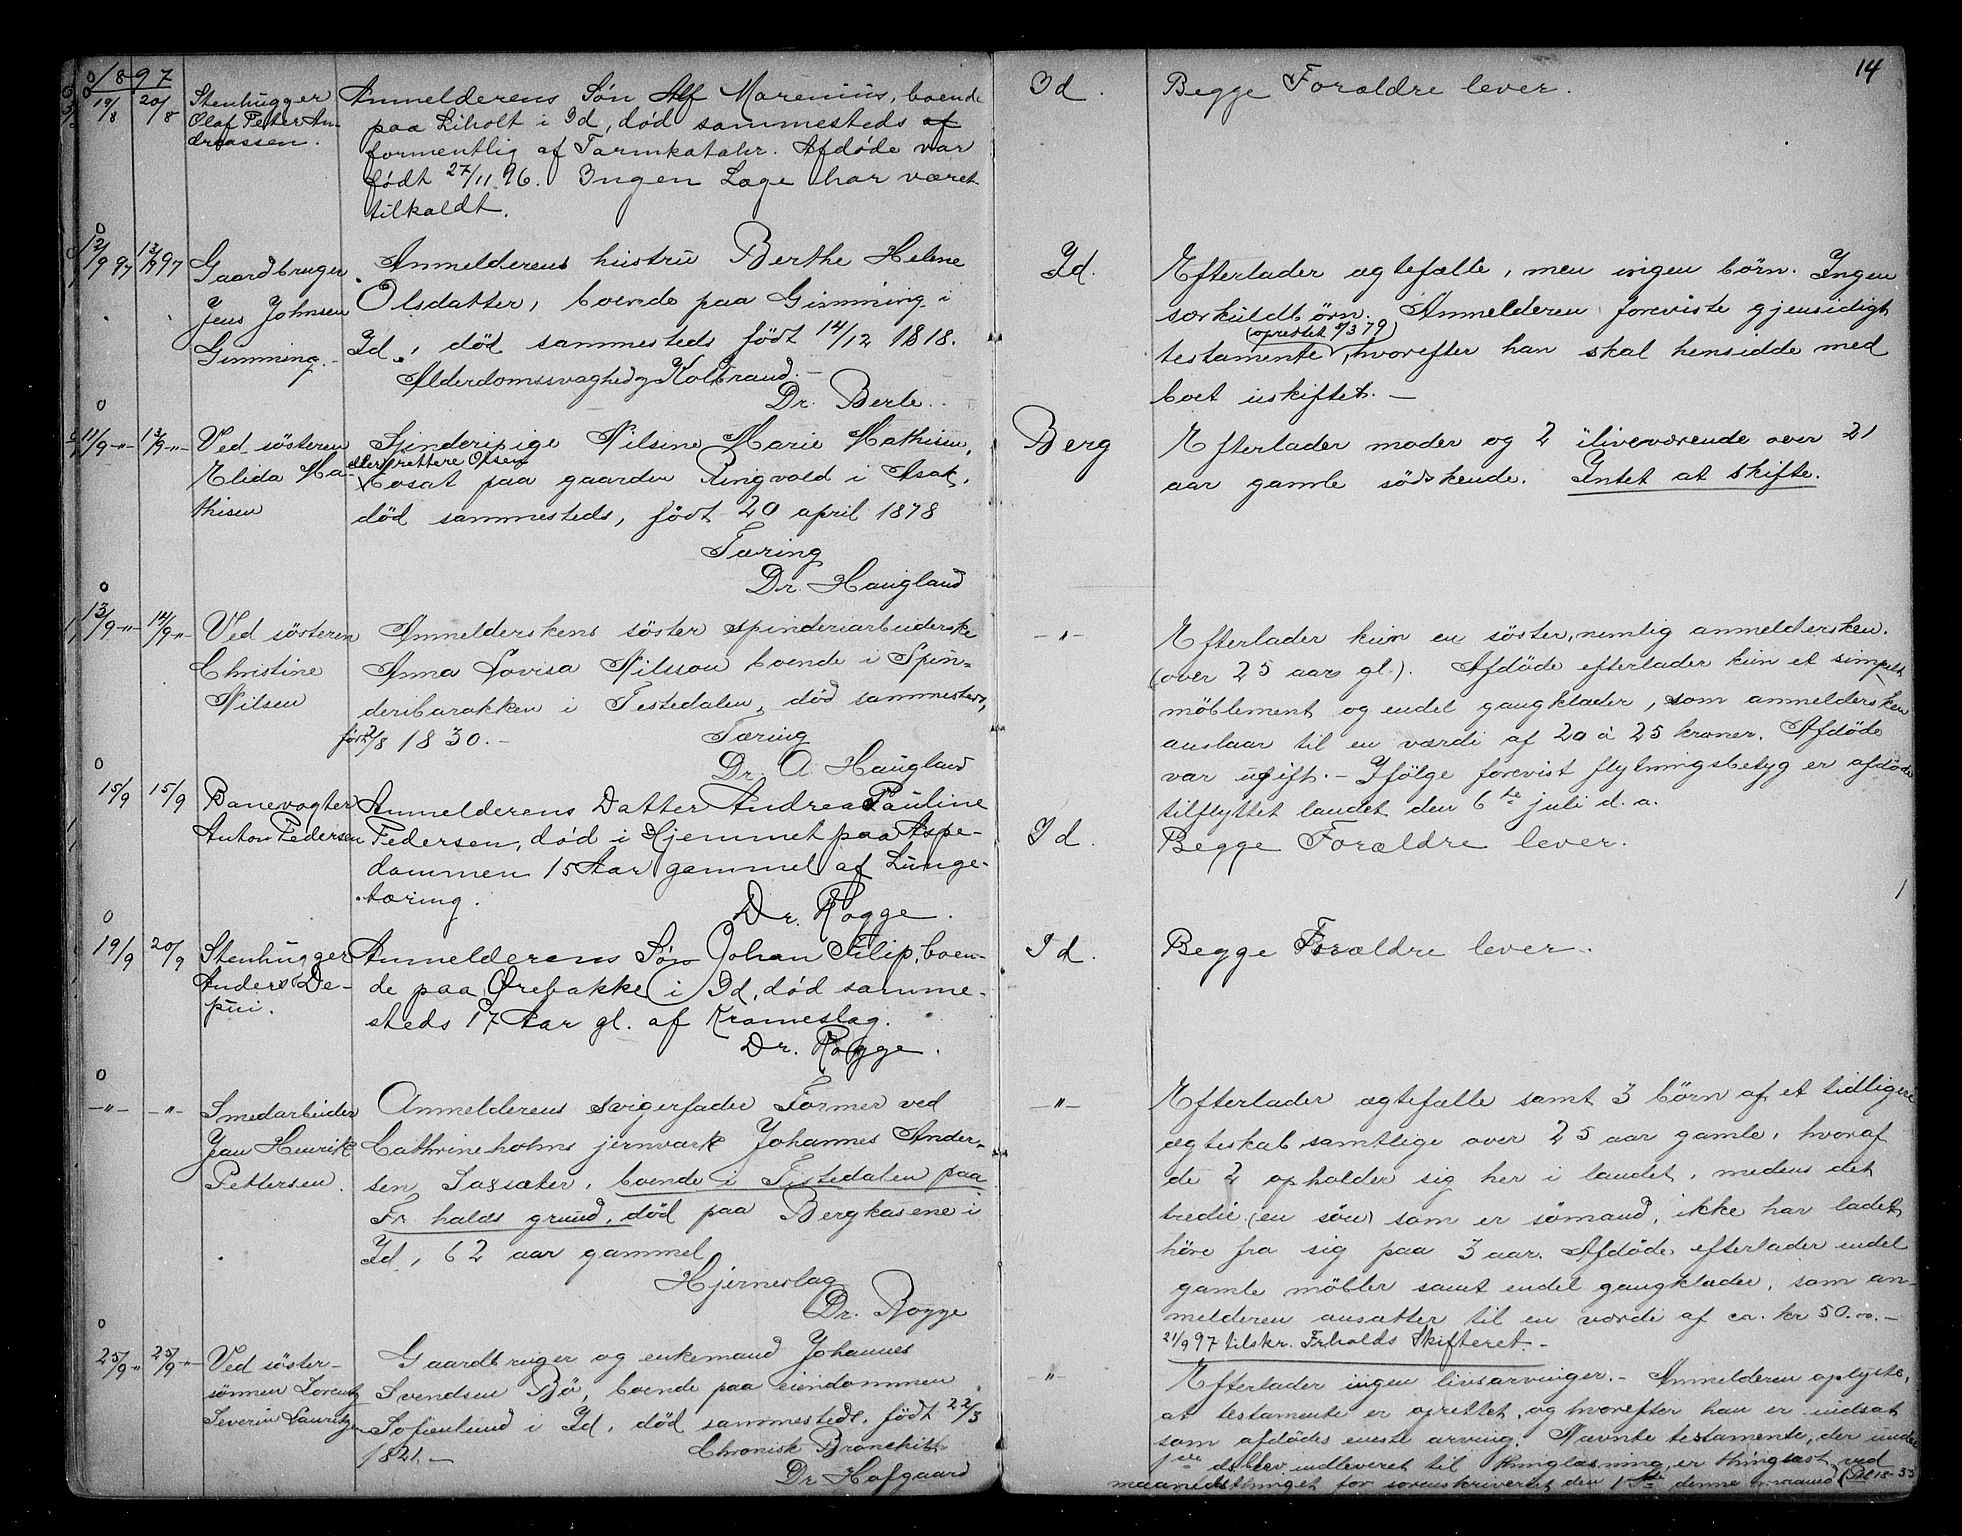 14
1897
19/8 20/8 Stenhugger
Olaf Peter An-
dreassen.
Anmelderens Søn Alf Marenius, boende
paa Liholt i Id, død sammesteds af
formentlig af Tarmkatahr. Afdøde var
født 27/11 96. Ingen Læge har været
tilkaldt.
Id.
Begge Forældre lever.
12/9 97 13/9 97 Gaardbruger
Jens Johnsen
Gimming.
Anmelderens hustru Berthe Helene
Olsdatter, boende paa Gimming i
Id, død sammesteds født 14/12 1818.
Alderdomssvaghed og Koldbrand.
Dr. Berle.
Id.
Efterlader ægtefælle, men ingen børn. Ingen
særkuldbørn. Anmelderen foreviste gjensidigt
(oprettet 1/3 79)
testamente, hvorefter han skal hensidde med
boet uskiftet. —
11/9 -"- 13/9 -"- Ved søsteren
Elida Ma-
thisen
Spinderipige Nilsine Marie Mathisen,
eller rettere Olsen
bosat paa gaarden Ringvold i Asak,
død sammesteds, født 20 april 1878
Tæring
Dr. Haugland
Berg
Efterlader moder og 2 ilivеværende over 21
aar gamle sødskende. Intet at skifte.
13/9 -"- 14/9 -"- Ved søsteren
Christine
Nilsen
Anmelderskens søster spinderiarbeiderske
Anna Lovisa Nilsson boende i Spin-
deribarakken i Testedalen, død sammesteds,
født 2/8 1830. — Tæring
Dr. A Haugland
-"-
Efterlader kun en søster, nemlig anmeldersken.
(over 25 aar gl.). Afdøde efterlader kun et simpelt
møblement og endel gangklæder, som anmeldersken
anslaar til en værdi af 20 à 25 kroner. Afdøde
var ugift. — Ifølge forevist flytningsbetyg er afdøde
tilflyttet landet den 6te juli d. a.
15/9 15/9 Banevogter
Anton Pedersen
Anmelderens Datter Andrea Pauline
Pedersen, død i Hjemmet paa Aspe-
dammen 15 Aar gammel af Lunge-
tæring.
Dr. Rogge.
Id.
Begge Forældre lever.
19/9 20/9 Stenhugger
Anders De-
pui.
Anmelderens Søn Johan Filip, boen-
de paa Ørebakke i Id, død samme-
steds 17 Aar gl. af Krameslag.
Dr. Rogge.
Id.
Begge Forældre lever.
-"- -"- Smedarbeider
Jan Henrik
Pettersen.
Anmelderens svigerfader Former ved
Cathrineholms jernværk Johannes Ander-
sen Saxsæter, boende i Tistedalen paa
Fr. halds grund, død paa Bergkasene i
Id, 62 aar gammel
Hjerneslag
Dr. Rogge
-"-
Efterlader ægtefælle samt 3 børn af et tidligere
ægteskab samtlige over 25 aar gamle, hvoraf
de 2 opholder sig her i landet, medens det
tredie (en søn) som er sømand, ikke har ladet
høre fra sig paa 3 aar. Afdøde efterlader endel
gamle møbler samt endel gangklæder, som an-
melderen ansætter til en værdi af ca. kr 50.00. —
21/9 97 tilskr. Frhalds Skifteret. —
25/9 -"- 25/9 -"- Ved søster-
sønnen Lorentz
Severin Lauritzen
Gaardbruger og enkemand Johannes
Svendsen Bö, boende paa eiendommen
Sofienlund i Id, død sammesteds, født 22/3
1821. — Chronisk Bronchitt
Dr. Hofgaard
"
Efterlader ingen livsarvinger. — Anmelderen oplyste,
at testamente er oprettet, og hvorefter han er indsat
som afdødes eneste arving. Nævnte testamente, der
blev indleveret til thinglæsning, er thinglæst ved
maanedsthinget for sorenskriveriet den 1ste denne maaned